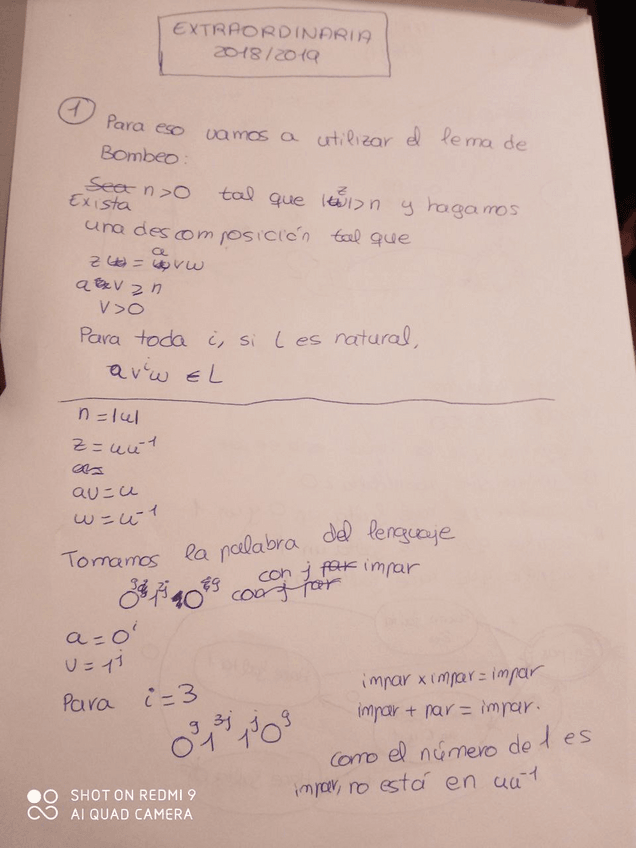 EXTRAORDINARIA
2018/2019
1
Para eso vamos a utilizar el lema de
Bombeo:
Exista n>0 tal que |z|>n y hagamos
una descomposición tal que
z = avw
av ≥ n
v>0
Para toda i, si L es natural,
avⁱw ∈ L
n = |u|
z = uu⁻¹
av = u
w = u⁻¹
Tomamos la palabra del lenguaje
con j impar
a = 0ⁱ
v = 1ʲ
Para i = 3
0⁹1³ʲ1ʲ0⁹
impar x impar = impar
impar + par = impar.
como el número de 1 es
impar, no está en uu⁻¹
SHOT ON REDMI 9
AI QUAD CAMERA